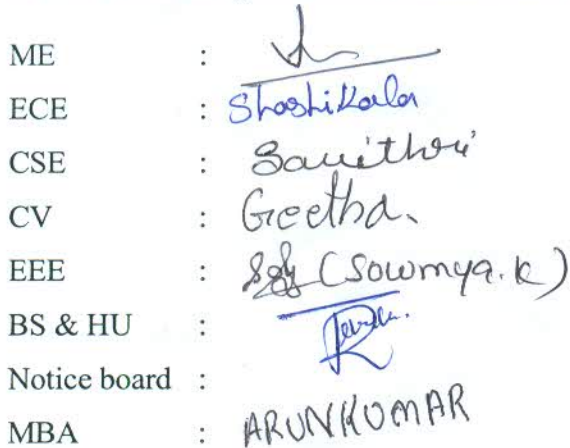 ME :
ECE : Shashikala
CSE : Savithri
CV : Geetha.
EEE : (Sowmya.K)
BS & HU :
Notice board :
MBA : ARUNKUMAR